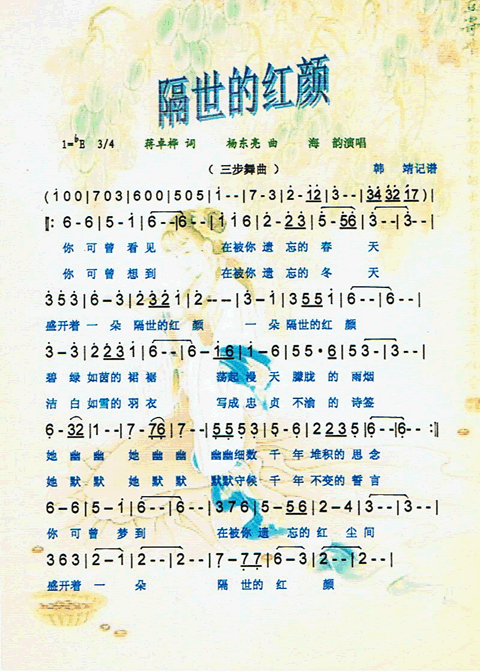 隔世的红颜
1=ᵇE 3/4 蒋卓桦 词 杨东亮 曲 海 韵演唱
（三步舞曲） 韩 靖记谱
(i00|703|600|505|i--|7-3|2-12|3--|34 32 17)|
𝄆 6-6|5-i|6--|6--|i6i2|2-23|5-56|3--|3--|
你 可曾 看见 在被你 遗 忘的 春 天
你 可曾 想到 在被你 遗 忘的 冬 天
353|6-3|232i|2---|3-i|355i|6--|6--|
盛开着 一 朵 隔世的红 颜 一 朵 隔世的红 颜
3-3|223i|6--|6--|6-i6|i-6|55·6|53-|3--|
碧 绿如茵的 裙裾 荡起 漫 天 朦胧 的 雨烟
洁 白如雪的 羽衣 写成 忠 贞 不渝 的 诗签
6-32|1--|7-76|7--|5553|5-6|2-2|2235|6--|6--:|
她 幽 幽 她 幽 幽 幽幽细数 千 年 堆积的 思 念
她 默 默 她 默 默 默默守候 千 年 不变的 誓 言
6-6|5-i|6--|6--|376|5-56|2-4|3--|3--|
你 可曾 梦到 在被你 遗 忘的 红 尘间
363|2-i|2--|2--|7-77|6-i|2--|2--|
盛开着 一 朵 隔 世的 红 颜